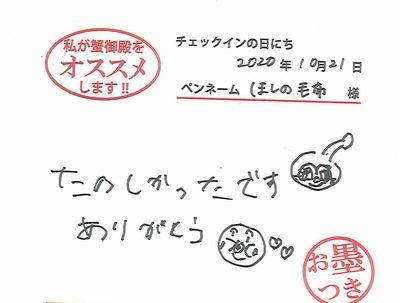 私が蟹御殿を
オススメ
します!!
チェックインの日にち
2020年10月21日
ペンネーム ほしの毛布 様
たのしかったです
ありがとう
お墨
つき